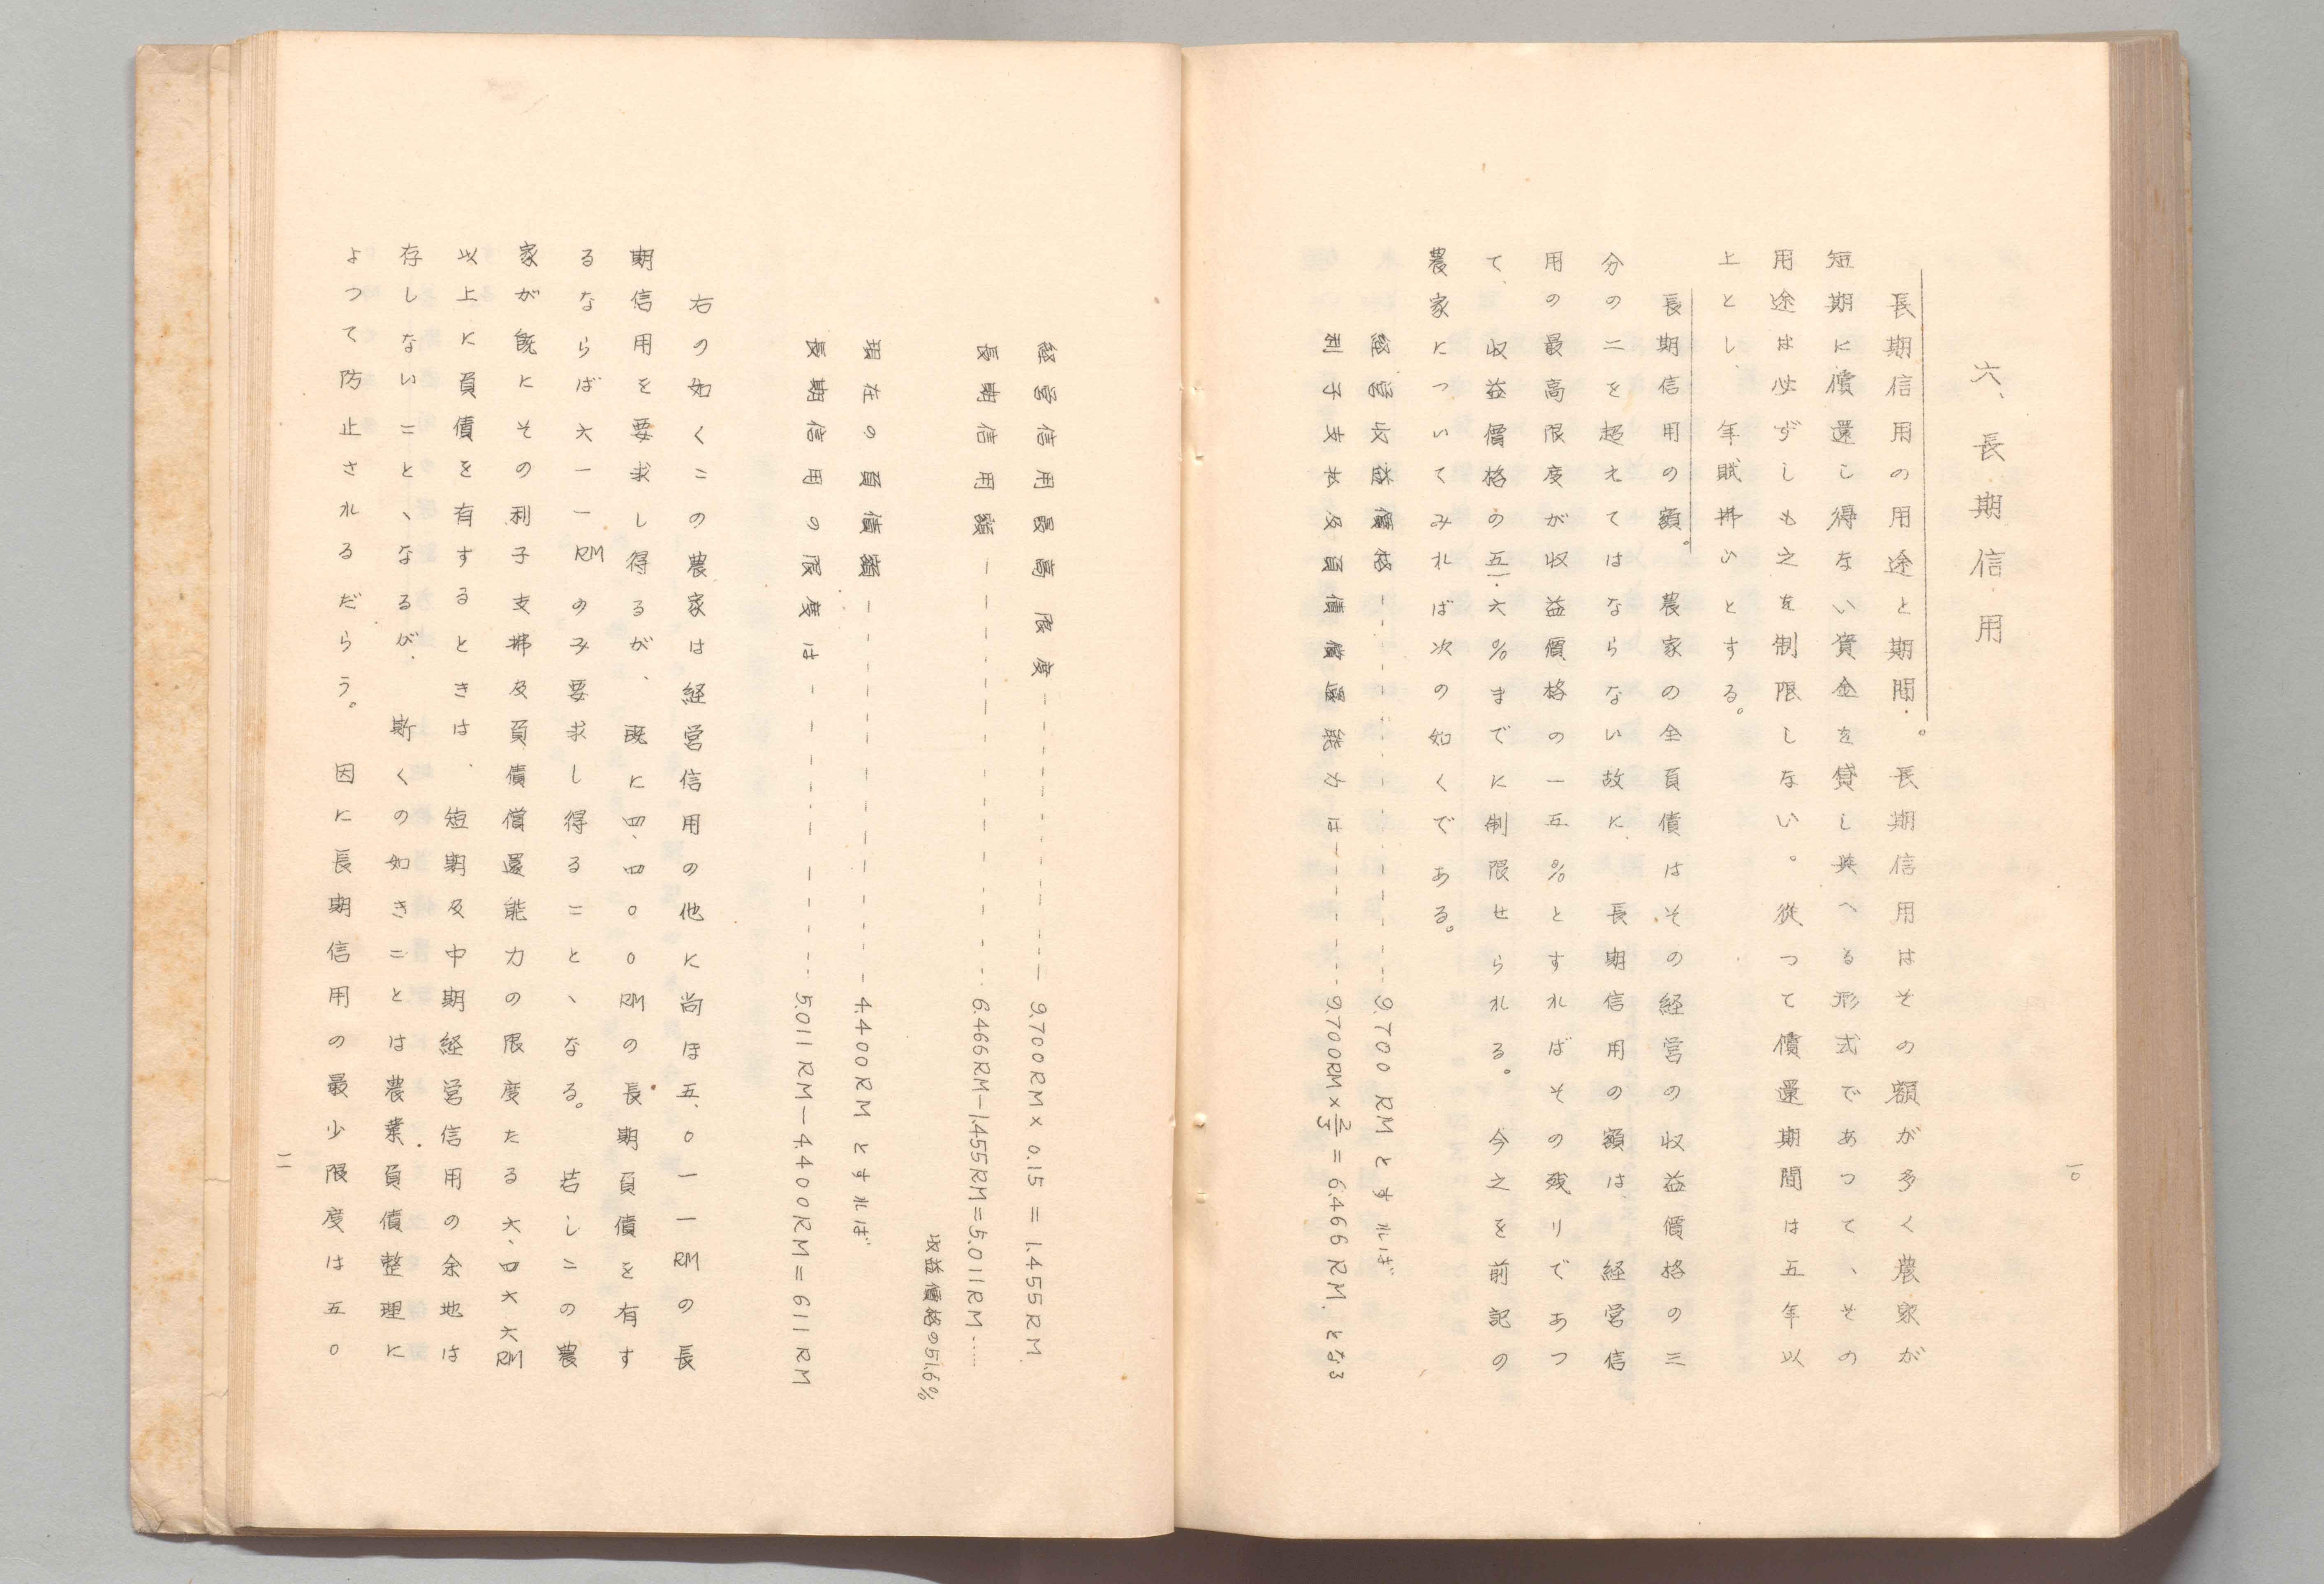 六、長期信用
長期信用の用途と期間。長期信用はその額が多く農家が
短期に償還し得ない資金を貸し與へる形式であつて、その
用途は必ずしも之を制限しない。從つて償還期間は五年以
上とし、年賦拂ひとする。
長期信用の額。農家の全負債はその経営の収益價格の三
分の二を超えてはならない故に、長期信用の額は、経営信
用の最高限度が収益價格の一五%とすればその残りであつ
て、収益價格の五一・六%までに制限せられる。今之を前記の
農家についてみれば次の如くである。
経営収益價格-----------9.700 RMとすれば
利子支拂及負債償還能力は-------9.700RM×2/3=6.466RM.となる
一〇
経営信用最高限度-----------9.700RM×0.15=1.455RM
長期信用額-----------6.466RM-1.455RM=5.011RM.....
収益價格の51.6%
現在の負債額-----------4.400RMとすれば
長期信用の限度は-----------5.011RM-4.400RM=611RM
右の如くこの農家は経営信用の他に尚ほ五、〇一一RMの長
期信用を要求し得るが、既に四、四〇〇RMの長期負債を有す
るならば六一一RMの み要求し得ること、なる。若しこの農
家が既にその利子支拂及負債償還能力の限度たる六、四六六RM
以上に負債を有するときは、短期及中期経営信用の余地は
存しないこと、なるが、斯くの如きことは農業負債整理に
よつて防止されるだらう。因に長期信用の最少限度は五〇
一一